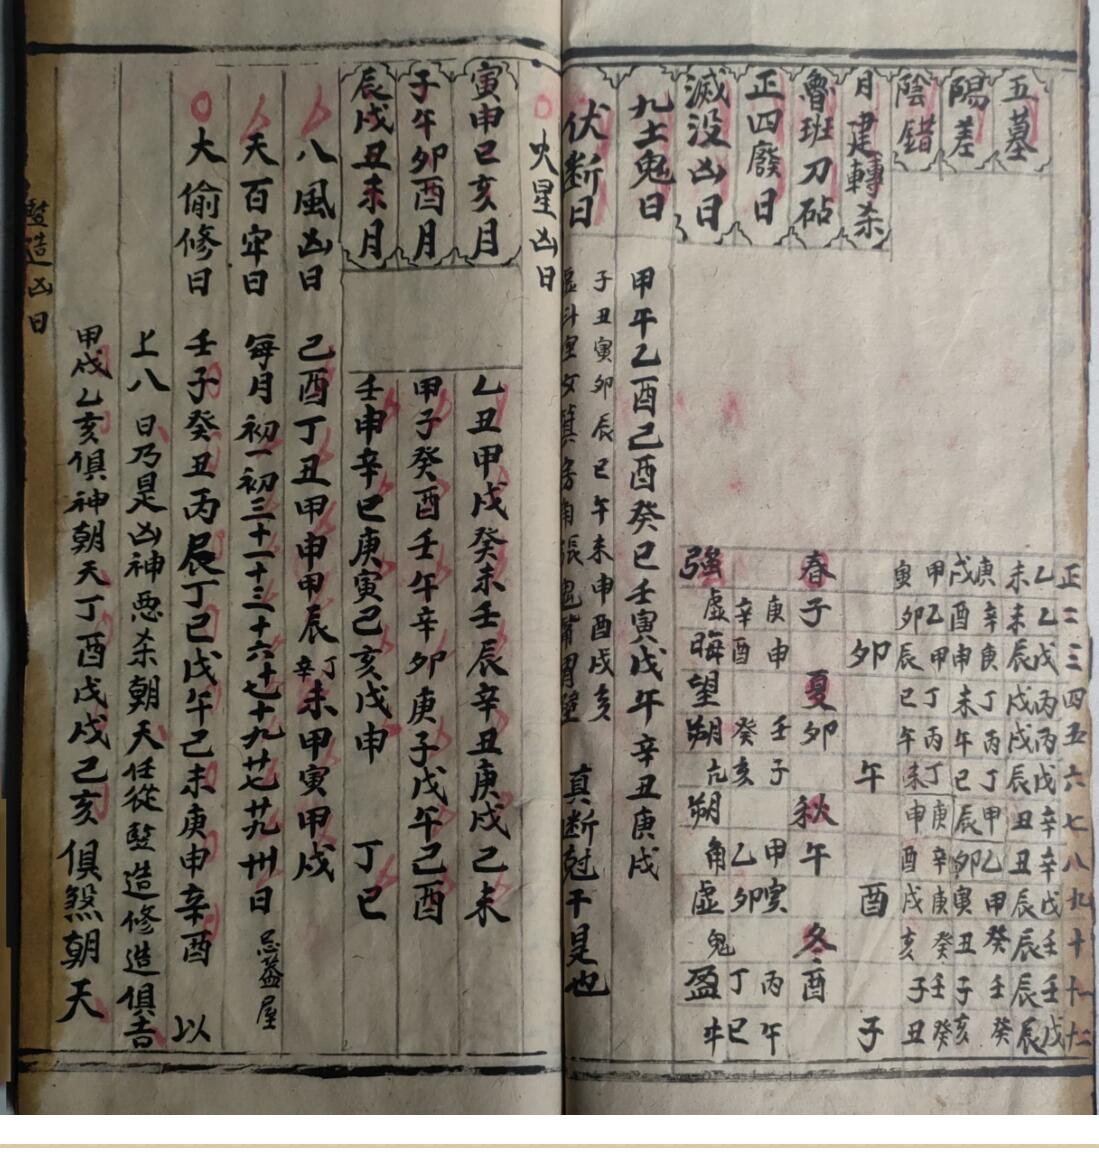 正 二 三 四 五 六 七 八 九 十 十一 十二
五墓 乙未 乙未 戊辰 丙戌 丙戌 戊辰 辛丑 辛丑 戊辰 壬辰 壬辰 戊辰
陽差 庚戌 辛酉 庚申 丁未 丙午 丁巳 甲辰 乙卯 甲寅 癸丑 壬子 癸亥
陰錯 甲寅 乙卯 甲辰 丁巳 丙午 丁未 庚申 辛酉 庚戌 癸亥 壬子 癸丑
月建轉杀 卯 午 酉 子
魯班刀砧 春子 夏卯 秋午 冬酉
正四廢日 庚申 辛酉 壬子 癸亥 甲寅 乙卯 丙午 丁巳
滅没凶日 強虛 晦 望 朔亢 朔角 虛鬼 盈牛
九土鬼日 甲午乙酉己酉癸巳壬寅戊午辛丑庚戌
伏断日 子丑寅卯辰巳午未申酉戌亥
虛斗室女箕房角張鬼觜胃壁 真断尅干是也
火星凶日
寅申巳亥月 乙丑甲戌癸未壬辰辛丑庚戌己未
子午卯酉月 甲子癸酉壬午辛卯庚子戊午己酉
辰戌丑未月 壬申辛巳庚寅己亥戊申 丁巳
八風凶日 己酉丁丑甲申甲辰辛丁未甲寅甲戌
天百牢日 每月初一初三十一十三十六十七十九廿七廿九卅日 忌蓋屋
大偷修日 壬子癸丑丙辰丁巳戊午己未庚申辛酉 以
上八日乃是凶神惡杀朝天任從豎造修造俱吉
甲戌乙亥俱神朝天丁酉戊戌己亥俱煞朝天
豎造凶日